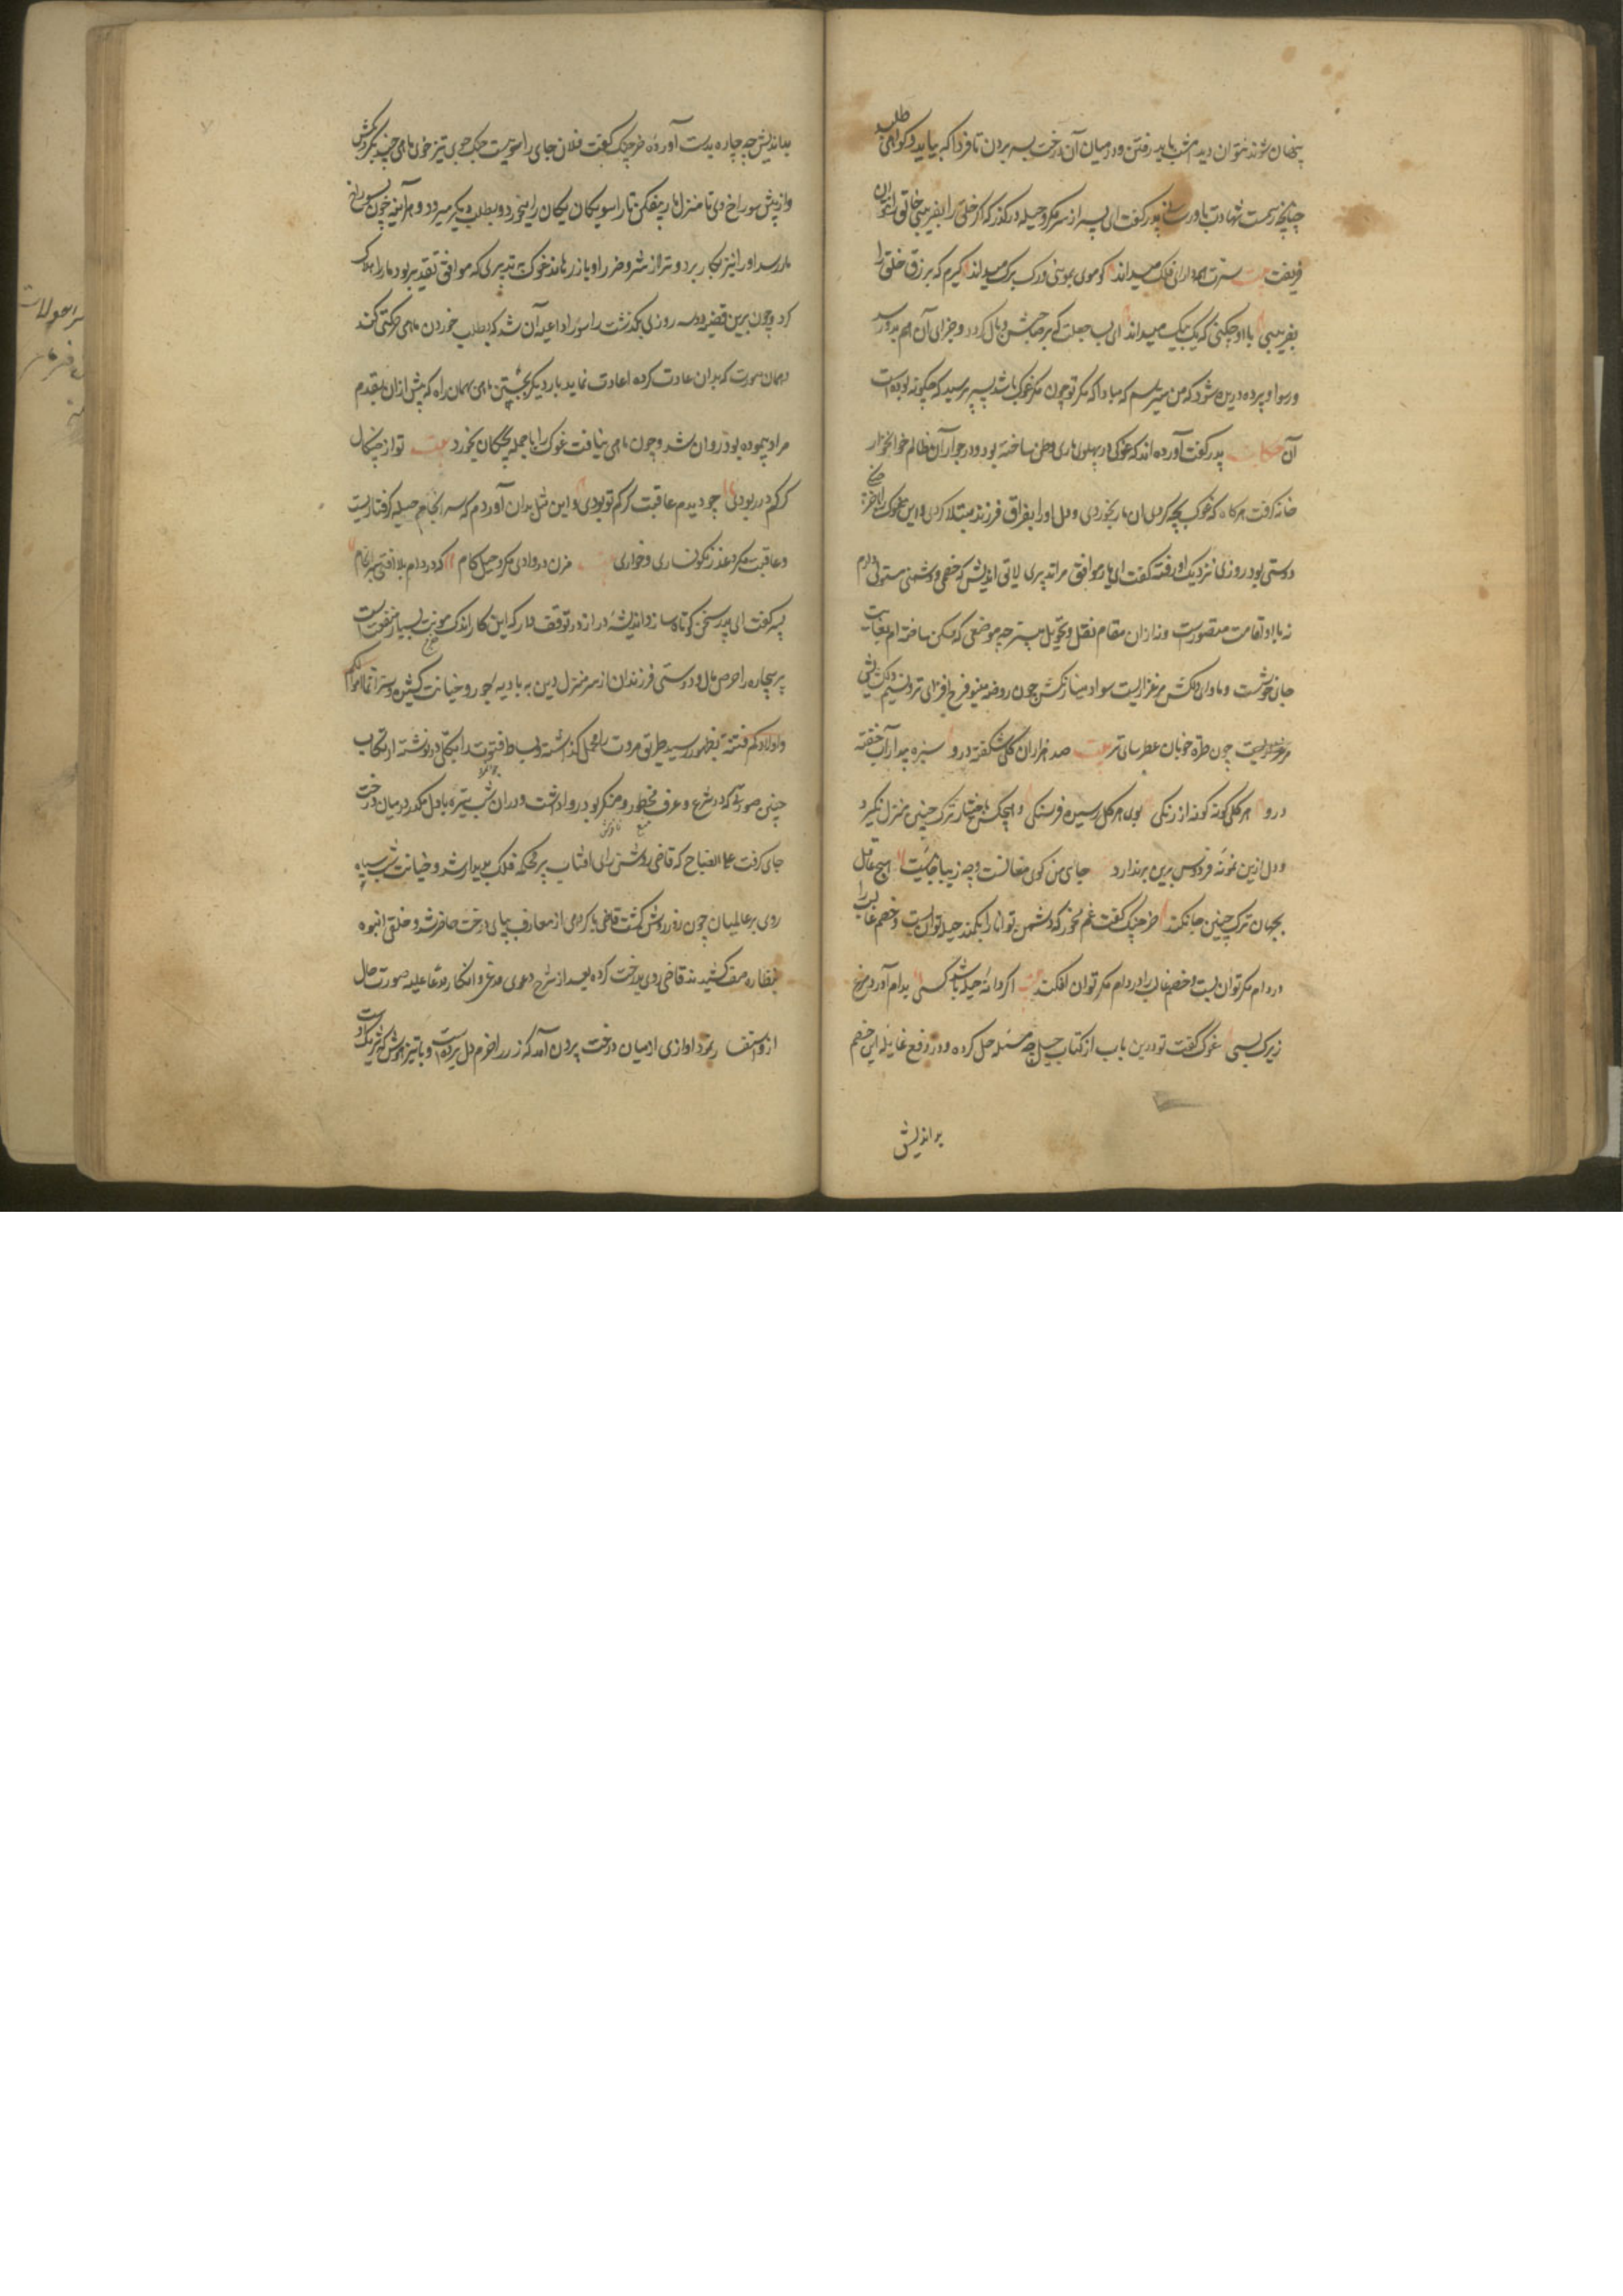 پنهان شوند نتوان دید امشب باید رفتن و در میان آن درخت بسر بردن تا فردا که بیاید و گواهی طلبد
چنانچه رسمست شهادت باور رسانی پدر گفت ای پسر از سر مکر و حیله درگذر که اگر خلق را بفریبی خالق را نتوان
فریفت بیت سرت همه دانای فلک میداند کو موی بموی و رگ برگ میداند گیرم که بزرق خلق را
بفریبی با او چکنی که یک بیک میداند ای بسا حیلت که بر صاحبش وبال گردد و جزای آن هم بدو رسد
و رسوا و پرده دریده شود که من میترسم که مبادا که مکر تو چون مکر غوک باشد پسر پرسید که چگونه بوده است
آن حکایت پدر گفت آورده اند که غوکی در پهلوی ماری وطن ساخته بود و در جوار آن ظالم خونخوار
خانه گرفت هر گاه که غوک بچه کردی آن مار بخوردی و دل او را بفراق فرزند مبتلا کردی و این غوک را با خرچنگی
دوستی بود روزی نزدیک او رفته گفت ای یار موافق مرا تدبیری لایق اندیش که خصمی و دشمنی مستولی دارم
نه با او اقامت متصورست و نه از آن مقام نقل و تحویل میسر چه موضعی که مسکن ساخته ام بغایت
جای خوشست و ماوای دلکش مرغزاریست سواد مینا رنگش چون روضه مینو فرح افزای تر و نسیم دلکشایش
چون طره خوبان عطرسای تر بیت صد هزاران گل شکفته درو سبزه بیدار آب خفته
درو هر گلی گونه گونه از رنگی بوی هر گل رسیده فرسنگی و هیچکس باختیار ترک چنین منزل نگیرد
و دل از این نمونه فردوس برین برندارد جای من کوی مغانست و چه زیبا جائیست هیچ عاقل
بجهان ترک چنین جا نکند خرچنگ گفت غم مخور که دشمن توانا را بکمند حیله توان بست و خصم غالب را
در دام مکر توان بست و خصم غالب را در دام مکر توان افکند بیت اگر دانه حیله باشد کسی بدام آورد مرغ
زیرک بسی غوک گفت تو درین باب از کتاب حیل چه مسئله حل کرده و در دفع غایله این خصم
بد اندیش
بد اندیش چه چاره بدست آورده خرچنگ گفت فلان جای راسوئیست جنگ جوی تیز خوی ماهی چند بگیر و بکش
و از پیش سوراخ وی تا منزل مار بیفکن تا راسو یکان یکان را میخورد و بطلب دیگر میرود و هر آینه چون بسوراخ
مار رسد او را نیز بکار برد و ترا از شر و ضرر او باز رهاند غوک بتدبیری که موافق تقدیر بود مار را هلاک
کرد و چون برین قضیه دو سه روزی بگذشت راسو را داعیه آن شد که بطلب خوردن ماهی حرکتی کند
و همان صورت که بدان عادت کرده اعادت نماید بار دیگر بجستن ماهی بهمان راه که پیش از آن بقدم
مراد پیموده بود روان شد و چون ماهی نیافت غوک را با جمله بچگان بخورد بیت تو از چنگال
گرگم در ربودی چو دیدم عاقبت گرگم تو بودی و این مثل بدان آوردم که سرانجام حیله گرفتاریست
و عاقبت مکر و غدر نگونساری و خواری بیت مزن در وادی مکر و حیل گام که در دام بلا افتی سرانجام
پسر گفت ای پدر سخن کوتاه ساز و اندیشه دراز در توقف دار که این کار اندک مؤنت بسیار منفعت است
پیر بیچاره را حرص مال و دوستی فرزندان از سر منزل دین به بادیه جور و خیانت کشیده و سر انما اموالکم
و اولادکم فتنة بظهور رسید طریق مروت را مهمل گذاشته و بساط فتوت را بکلی درنوشته ارتکاب
چنین صورتی که در شرع و عرف محظور و منکر بود روا داشت و در آن شب تیره با دل مکدر در میان درخت
جای گرفت علی الصباح که قاضی روشن رای آفتاب بر محکمه فلک پدیدار شد و خیانت شب سیاه
روی بر عالمیان چون روز روشن گشت قاضی با گروهی از معارف بپای درخت حاضر شد و خلقی انبوه
بنظاره صف کشیدند قاضی روی بدرخت کرده بعد از شرح دعوی مدعی و انکار مدعا علیه صورت حال
از و استفسار نمود آوازی از میان درخت بیرون آمد که زر را خرم دل برده است و با تیزهوش شریک